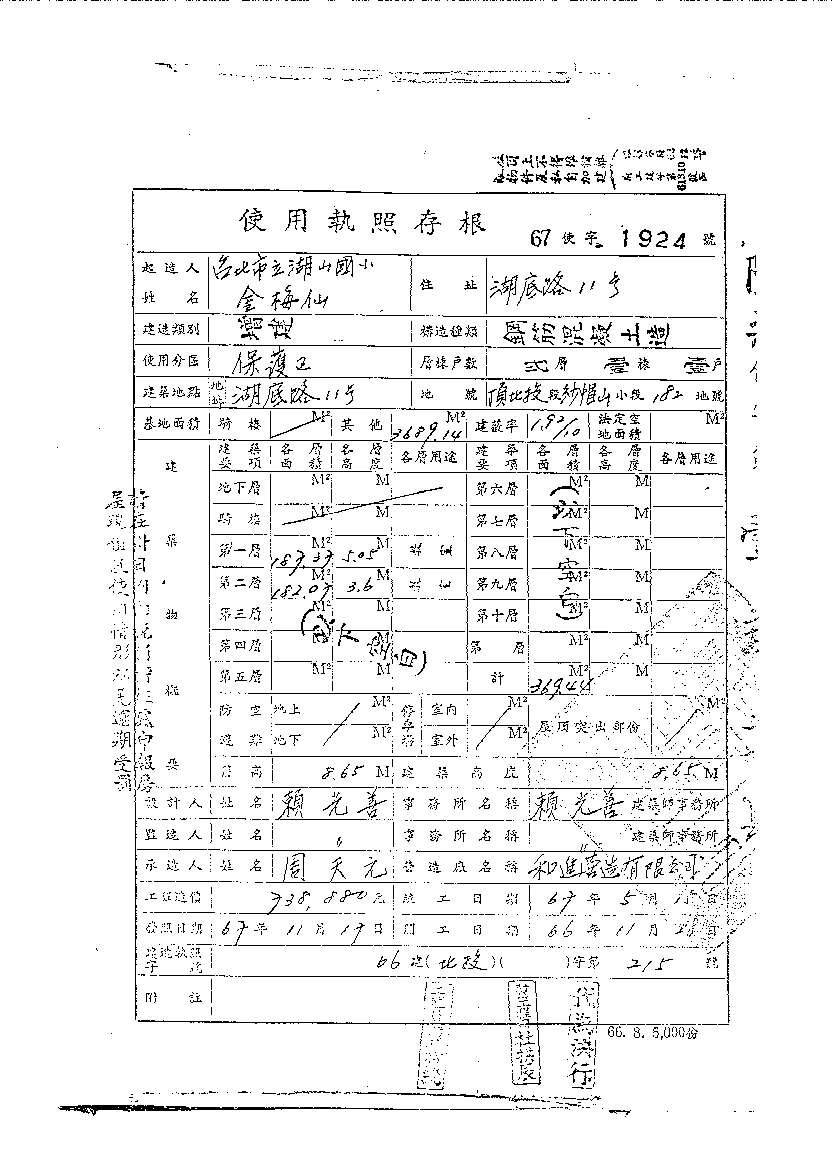 使用執照存根
67 使字 1924 號
起造人姓名 台北市立湖山國小 金梅仙 住址 湖底路11号
建造類別 增建 構造種類 鋼筋混凝土造
使用分區 保護區 層棟戶數 弍層 壹棟 壹戶
建築地點 地址 湖底路11号 地號 頂北投段紗帽山小段 182 地號
基地面積 騎樓 M² 其他 3689.14 M² 建蔽率 1.92/10 法定空地面積 M²
建築物概要
建築要項 各層面積 各層高度 各層用途 建築要項 各層面積 各層高度 各層用途
地下層 M² M 第六層 M² M
騎樓 M² M 第七層 M² M
第一層 187.37 M² 5.05 M 第八層 M² M
第二層 182.07 M² 3.6 M 第九層 M² M
第三層 M² M 第十層 M² M
第四層 M² M 第 層 M² M
第五層 M² M 計 369.44 M² M
(以下空白)
(以下空白)
防空避難 地上 M² 停車場 室內 M² 屋頂突出部份 M²
地下 M² 室外 M²
簷高 8.65 M 建築高度 8.65 M
設計人 姓名 賴光善 事務所名稱 賴光善 建築師事務所
監造人 姓名 〃 事務所名稱 〃 建築師事務所
承造人 姓名 周天元 營造廠名稱 和進營造有限公司
工程造價 738,880元 竣工日期 67年5月15日
發照日期 67年11月17日 開工日期 66年11月
建造執照字號 66建(北投)( )字第 215 號
附註
代為決行
66. 8. 5,000份